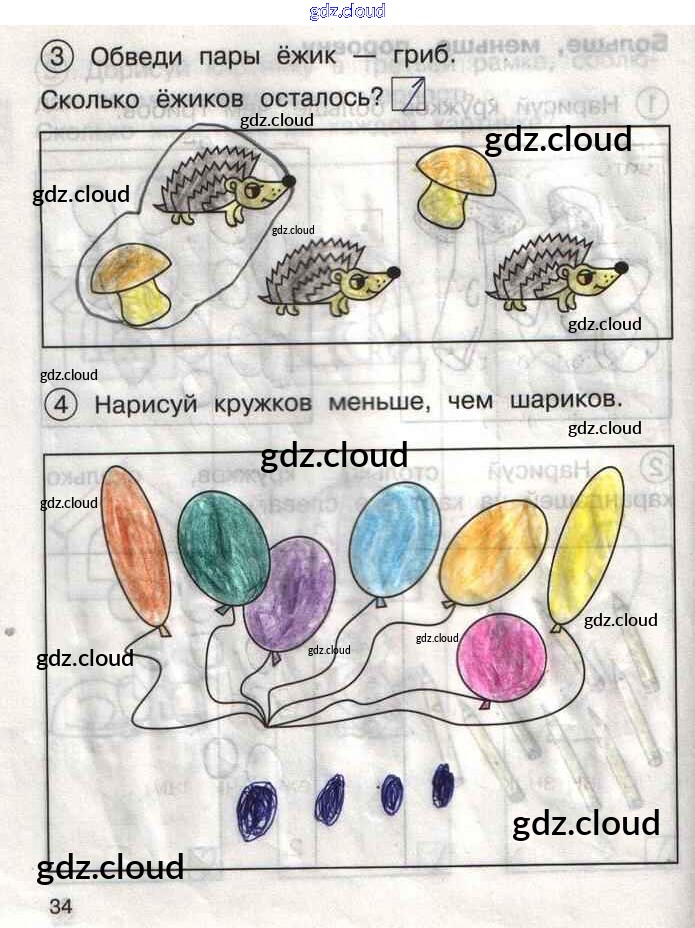 gdz.cloud
3 Обведи пары ёжик — гриб.
Сколько ёжиков осталось? 1
gdz.cloud
gdz.cloud
gdz.cloud
gdz.cloud
gdz.cloud
gdz.cloud
4 Нарисуй кружков меньше, чем шариков.
gdz.cloud
gdz.cloud
gdz.cloud
gdz.cloud
gdz.cloud
gdz.cloud
gdz.cloud
gdz.cloud
gdz.cloud
34